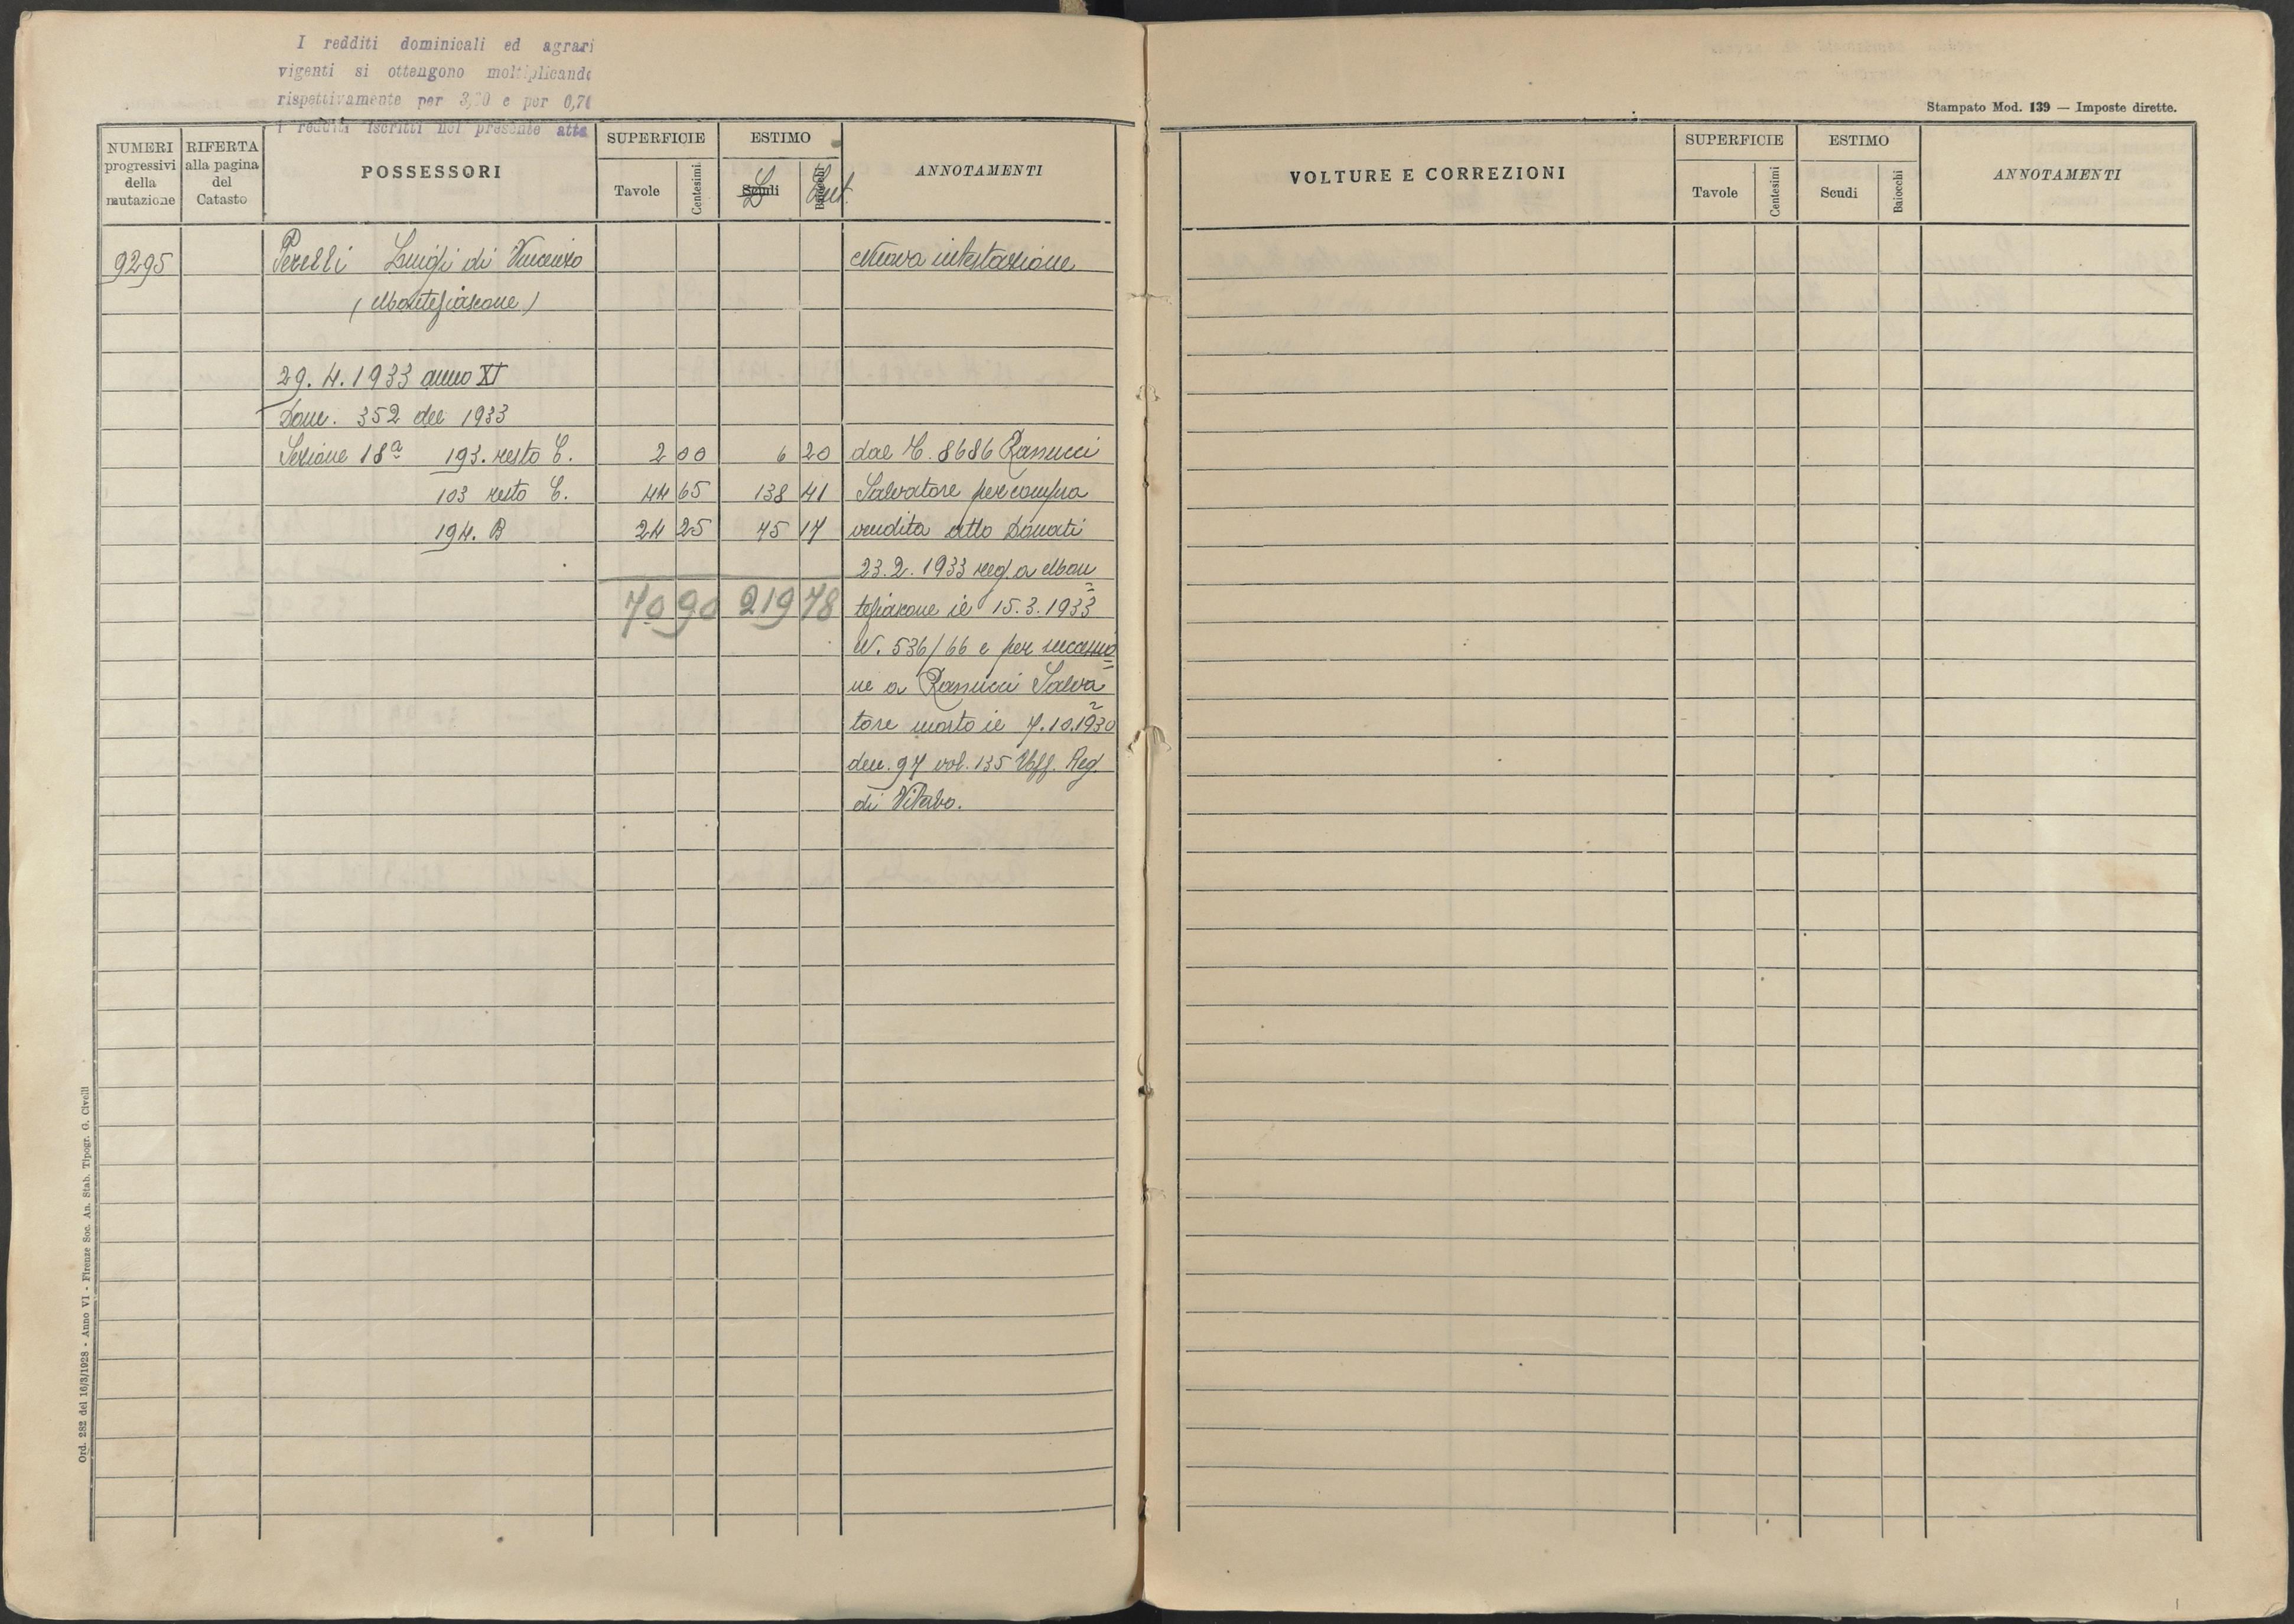 I redditi dominicali ed agrari
vigenti si ottengono moltiplicando
rispettivamente per 3,20 e per 0,70
i redditi iscritti nel presente atto
Stampato Mod. 139 — Imposte dirette.
NUMERI progressivi della mutazione
RIFERTA alla pagina del Catasto
POSSESSORI
SUPERFICIE
Tavole Centesimi
ESTIMO
Scudi Baiocchi
L Cent.
ANNOTAMENTI
VOLTURE E CORREZIONI
SUPERFICIE
Tavole Centesimi
ESTIMO
Scudi Baiocchi
ANNOTAMENTI
9295 Perelli Luigi di Vincenzo Nuova intestazione
(Montefiascone)
29. 4. 1933 anno XI
Dom. 352 del 1933
Sezione 18ª 193. resto C. 2 00 6 20 dal C. 8686 Ranucci
103 resto C. 44 65 138 41 Salvatore per compra
194. B 24 25 75 17 vendita atto Donati
23.2.1933 reg. a Mon=
70 90 219 78 tefiascone il 15.3.1933
N. 536/66 e per successio=
ne a Ranucci Salva=
tore morto il 7.10.1930
den. 97 vol. 135 Uff. Reg.
di Viterbo.
Ord. 282 del 16/3/1928 - Anno VI - Firenze Soc. An. Stab. Tipogr. G. Civelli